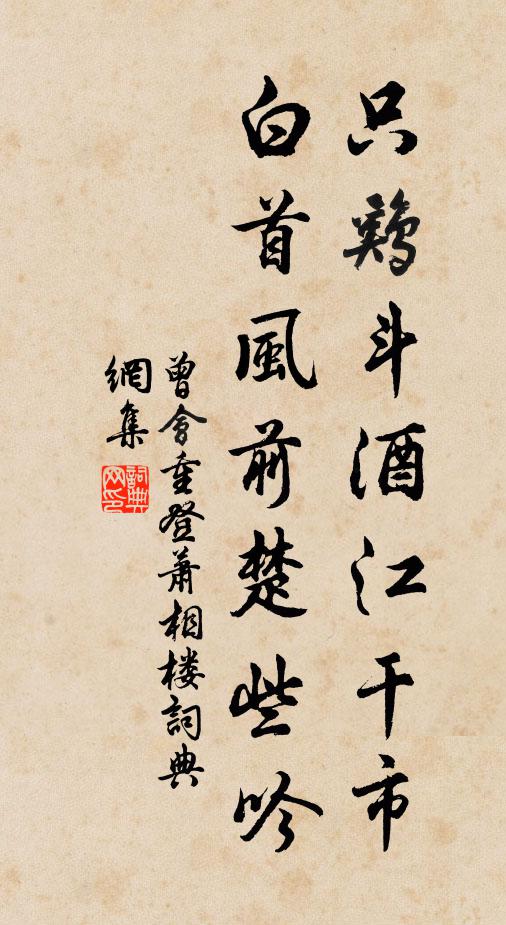 只鷄斗酒江干市
白首風前楚些吟
曾會重登萧相楼詞典
網集
詞典
网印